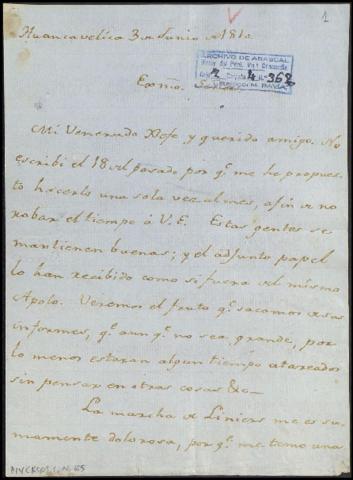 1
Huancavelica 3 de Junio de 1810
ARCHIVO DE ABASCAL
2 4 362
Exõmo. Señor
Mi Venerado Xefe, y querido amigo. No
escribi el 18 del pasado por q.e me he propues-
to hacerlo una sola vez al mes, afin de no
robar el tiempo à V.E. Estas gentes se
mantienen buenas; y el adjunto papel
lo han recibido como si fuera del mismo
Apolo. Veremos el fruto q.e sacamos de sus
informes, q.e aunq.e no sea grande, por
lo menos estaran algun tiempo atareados
sin pensar en otras cosas &c—
La marcha de Liniers me es su-
mamente dolorosa, por q.e me temo una